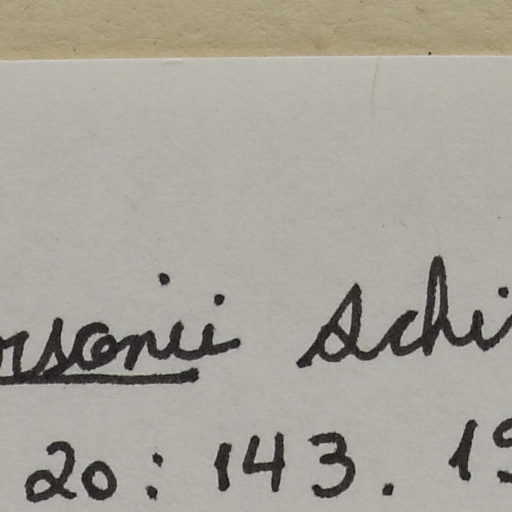 rsonii Schi
20: 143. 19